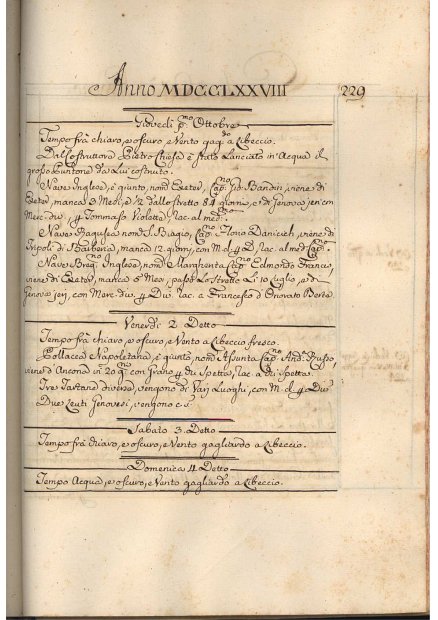 Anno MDCCLXXVIII 229
Giovedi p.mo Ottobre
Tempo frà chiaro, e oscuro e Vento gag.do a Libeccio.
Dal Costruttore Pietro Chiesa è stato Lanciato in Acqua il
grosso Puntone da Lui costruito.
Nave Inglese, è giunto, nom.a Exeter, Cap.no Gid. viene di
Exeter, manca 3 Mesi, e 1/2 dallo stretto 84 giorni, e di Genova jeri con
Merc. div. p Tommaso Violetta Rac. al med.mo
Nave Ragusea nom.a S. Biagio, Cap.no Florio Danievich, viene di
Tripoli di Barberia, manca 12 giorni, con M. d. p D. Rac. al med. Cap.no
Nave Brig.no Inglese, nom.a Margherita Cap.no Edmondo Francis,
viene di Exeter, manca 5 Mesi, passò Lo stretto Li 10 luglio, e di
Genova jeri, con Merc. div. p Div. Rac. a Francesco d'Onorato Berte.
Venerdi 2 Detto
Tempo frà chiaro, e oscuro, e Vento a Libeccio fresco.
Pollacca Napoletana, è giunta, nom.a Assunta Cap.no And. Russo,
viene d Ancona in 20 g.ni con Grano p di Spetta, Rac. a di Spetta.
Tre Tartane diverse, vengono di Varj Luoghi, con M. d. p Div.
Due Leuti Genovesi, vengono c. s.
Sabato 3 Detto
Tempo frà chiaro, e oscuro, e Vento gagliardo a Libeccio.
Domenica 4 Detto
Tempo Acqua, e oscuro, e Vento gagliardo a Libeccio.